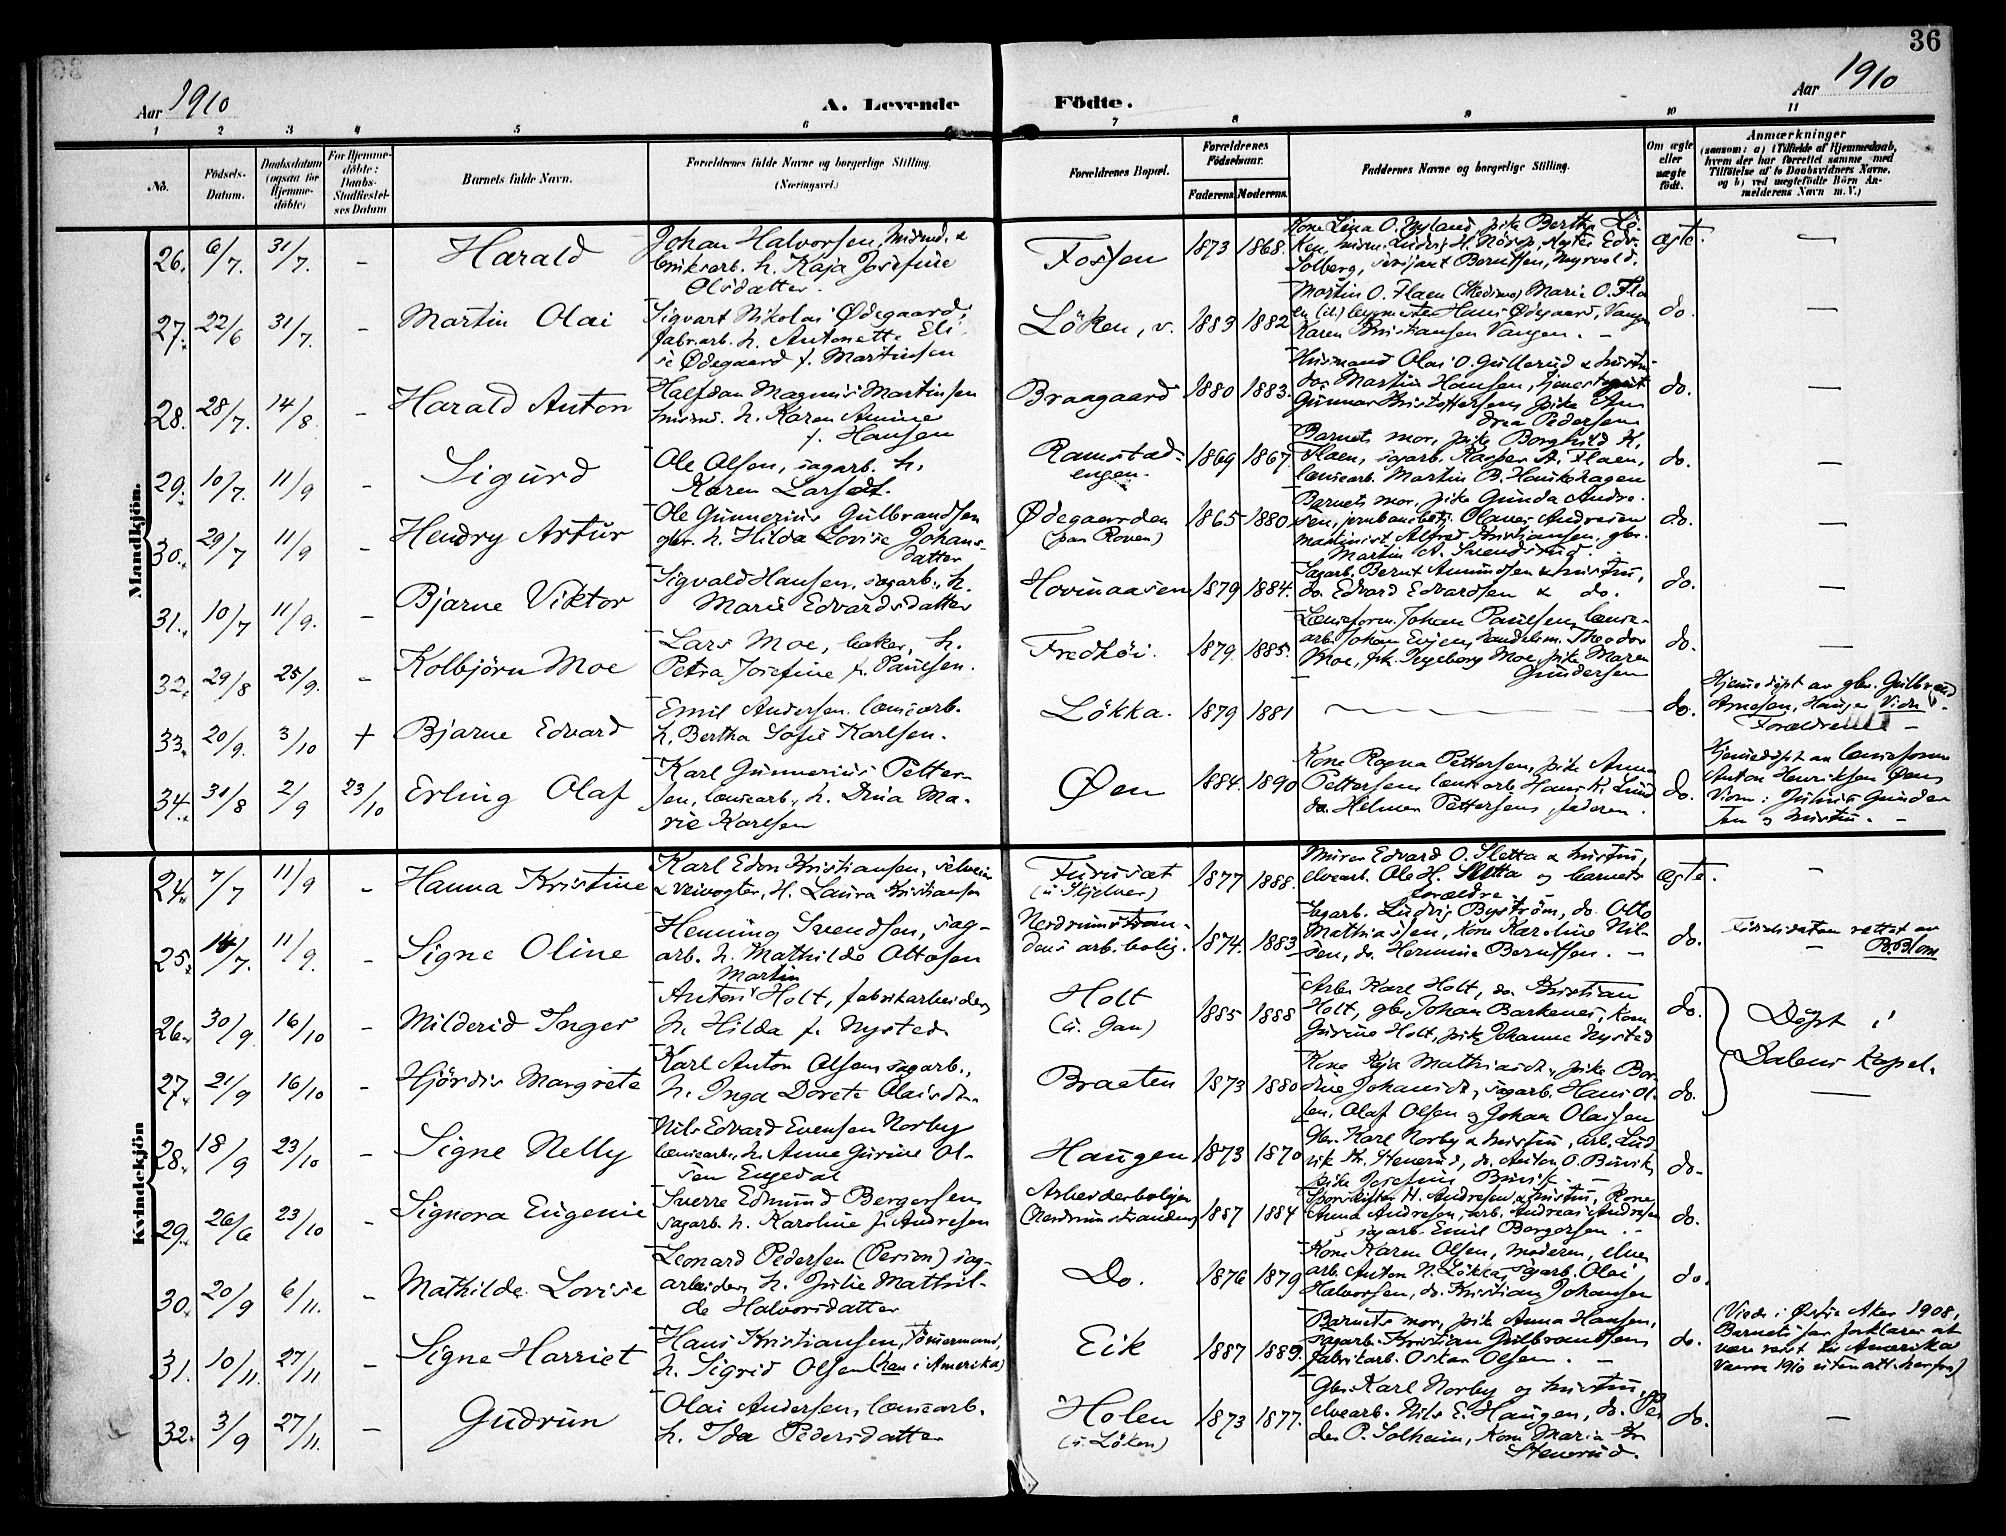 36
Aar 1910
A. Levende Födte.
Aar 1910
1 2 3 4 5 6 7 8 9 10 11
No.
Födsels-Datum.
Daabsdatum (ogsaa for Hjemme-döbte)
For Hjemme-döbte: Daabs-Stadfæstel-ses Datum
Barnets fulde Navn.
Forældrenes fulde Navne og borgerlige Stilling. (Næringsvei.)
Forældrenes Bopæl.
Forældrenes Födselsaar.
Faderens. Moderens.
Faddernes Navne og borgerlige Stilling.
Om ægte eller uægte födt.
Anmærkninger
(saasom: a) i Tilfælde af Hjemmedaab, hvem der har forrettet samme med Tilföielse af to Daabsvidners Navne, og b) ved uægtefödte Börn Anmelderens Navn m. V.)
Mandkjön.
26. 6/7. 31/7. – Harald
Johan Halvorsen, husmd. &
briksarb. h. Kaja Josefine
Olsdatter.
Fossen 1873 1868.
Solberg, serjant Berntsen, Myrvold.
ægte. –
27. 22/6 31/7. – Martin Olai
Sigvart Nikolai Ødegaard,
fabr.arb. h. Antonette Eli-
se Ødegaard f. Martinsen
Löken, v. 1883 1882
Martin O. Flaen Marie O. Fla
en Hans Ødegaard, Vangen
Karen Kristiansen Vangen. –
do. –
28. 28/7. 14/8. – Harald Anton
Halfdan Magnus Martinsen
husmd. h. Karen Amine
f. Hansen
Braagaard 1880 1883.
Husmand Olai O. Gullerud & hustru
do. Martin Hansen, tjenestegut
Gunnar Kristoffersen, pike An-
drea Pedersen
do. –
29. 10/7. 11/9 – Sigurd
Ole Olsen, sagarb. h.
Karen Larsdt.
Ramstad-
engen. 1869 1867.
Barnets mor, pike Borghild K.
Flaen, sagarb. Kasper A. Flaen,
lænsearb. Martin B. Haukshagen
do. –
30. 29/7 11/9 – Hendry Artur
Ole Gunnerius Gulbrandsen
gbr. h. Hilda Lovise Johans-
datter
Ødegaarden
(paa Roven) 1865 1880
Barnets mor, pike Gunda Andre-
sen, jernbanebetj. Olaves Andresen
maskinist Alfred Kristiansen, gbr.
Martin A. Svendsrud.
do. –
31. 10/7 11/9. – Bjarne Viktor
Sigvald Hansen, sagarb., h.
Marie Edvardsdatter
Hovinaasen 1879 1884.
Sagarb. Bernt Amundsen & hustru,
do. Edvard Edvardsen & do.
do. –
32. 29/8 25/9. – Kolbjörn Moe
Lars Moe, baker, h.
Petra Josefine f. Paulsen.
Fredhöi. 1879. 1885.
Lænseform. Johan Paulsen, lænse-
arb. Johan Evjen, handelsm. Theodor
Moe, frk. Ingeborg Moe, pike Maren
Gundersen
do. –
33. 20/9. 3/10 + Bjarne Edvard
Emil Andersen lænsearb.
h. Bertha Sofie Karlsen.
Lökka. 1879 1881
do.
Hjemmedöpt av gbr. Gulbrand
Arnesen, Haugen Vidn.
Forældrene –
34. 31/8 2/9 23/10 Erling Olaf
Karl Gunnerius Petter-
sen, lænsearb., h. Dina Ma-
rie Karlsen
Øen 1884. 1890
Kone Ragna Pettersen, pike Anna
Pettersen lænsearb. Hans K. Lund
do. Helmer Pettersen, faderen.
do.
Hjemmedöpt av lænseform
Anton Henriksen Øen,
Vidn: Julius Gunder
sen og hustru. –
Kvindekjön
24. 7/7 11/9 – Hanna Kristine
Karl Edon Kristiansen,
& veivogter, H. Laura Kristiansen
Furuset
(u. Skjelver) 1877 1888.
Murer Edvard O. Sletta & hustru,
elvearb. Ole H. Sletta og barnets
forældre –
ægte. –
25. 14/7. 11/9. – Signe Oline
Henning Svendsen, sag-
arb. h. Mathilde Ottosen
Nerdrumstran-
dens arb.bolig. 1874. 1883
Sagarb. Ludvig Byström, do. Otto
Mathiassen, kone Karoline Nil-
sen, do. Hermine Berntsen. –
do.
Födselsdatum rettet av
– B. Blom
26. 30/9 16/10 – Milderid Inger
Martin
Anton Holt, fabrikarbeider,
h. Hilda f. Nysted.
Holt
(u. Gan) 1885 1888
Arb. Karl Holt, do. Kristian
Holt, gbr. Johan Barkenes, kone
Gurine Holt, pike Johanne Nysted
do.
Döpt i
Dalens Kapel.
27. 21/9 16/10 – Hjördis Margrete
Karl Anton Olsen sagarb.,
h. Inga Dorete Olaisdt.
Braaten 1873 1880
Kone Kaja Mathiasdt., pike Bor-
dine Johansdt., sagarb. Hans Ol-
sen, Olaf Olsen og Johan Olaisen
do. –
28. 18/9 23/10 – Signe Nelly
Nils Edvard Evensen Norby
lænsearb., h. Anne Gurine Ol-
sen Engedal
Haugen 1873 1870
Gbr. Karl Norby & hustru, arb. Lud-
vik Kr. Stenerud, do. Anton O. Buvik,
pike Josefine Buvik. –
do.
29. 26/6 23/10 – Signora Eugenie
Sverre Edmund Bergersen
sagarb. h. Karoline f. Andresen
Arbeiderboligen
(Nerdrumstranden) 1887 1884
H. Andresen & hustru, Kone
Anna Andresen, arb. Andreas Andresen
sagarb. Emil Bergersen. –
do.
30. 20/9 6/11. – Mathilde Lovise
Leonard Pedersen (Persson) sag-
arbeider, h. Julie Mathil-
de Halvorsdatter
Do. 1876 1879
Kone Karen Olsen, moderen, elve-
arb. Anton N. Lökka, sagarb. Olai
Halvorsen, do. Kristian Johansen
do.
31. 10/11. 27/11 – Signe Harriet
Hans Kristiansen, tömmermand,
h. Sigrid Olsen (han i Amerika)
Eik 1887 1889.
Barnets mor, pike Anna Hansen,
sagarb. Kristian Gulbrandsen
fabrikarb. Oskar Olsen. –
do.
(Viede i Østre Aker 1908,
Barnets far forklares at
være reist til Amerika
vaaren 1910 herfra)
32. 3/9 27/11. – Gudrun
Olai Andersen, lænsearb.
h. Ida Pedersdatter
Holen
(u. Löken) 1873 1877.
Gbr. Karl Norby og hustru,
elvearb. Nils E. Haugen, do. Pe-
der P. Solheim, Kone Maria Kr.
Stenerud.
do. –